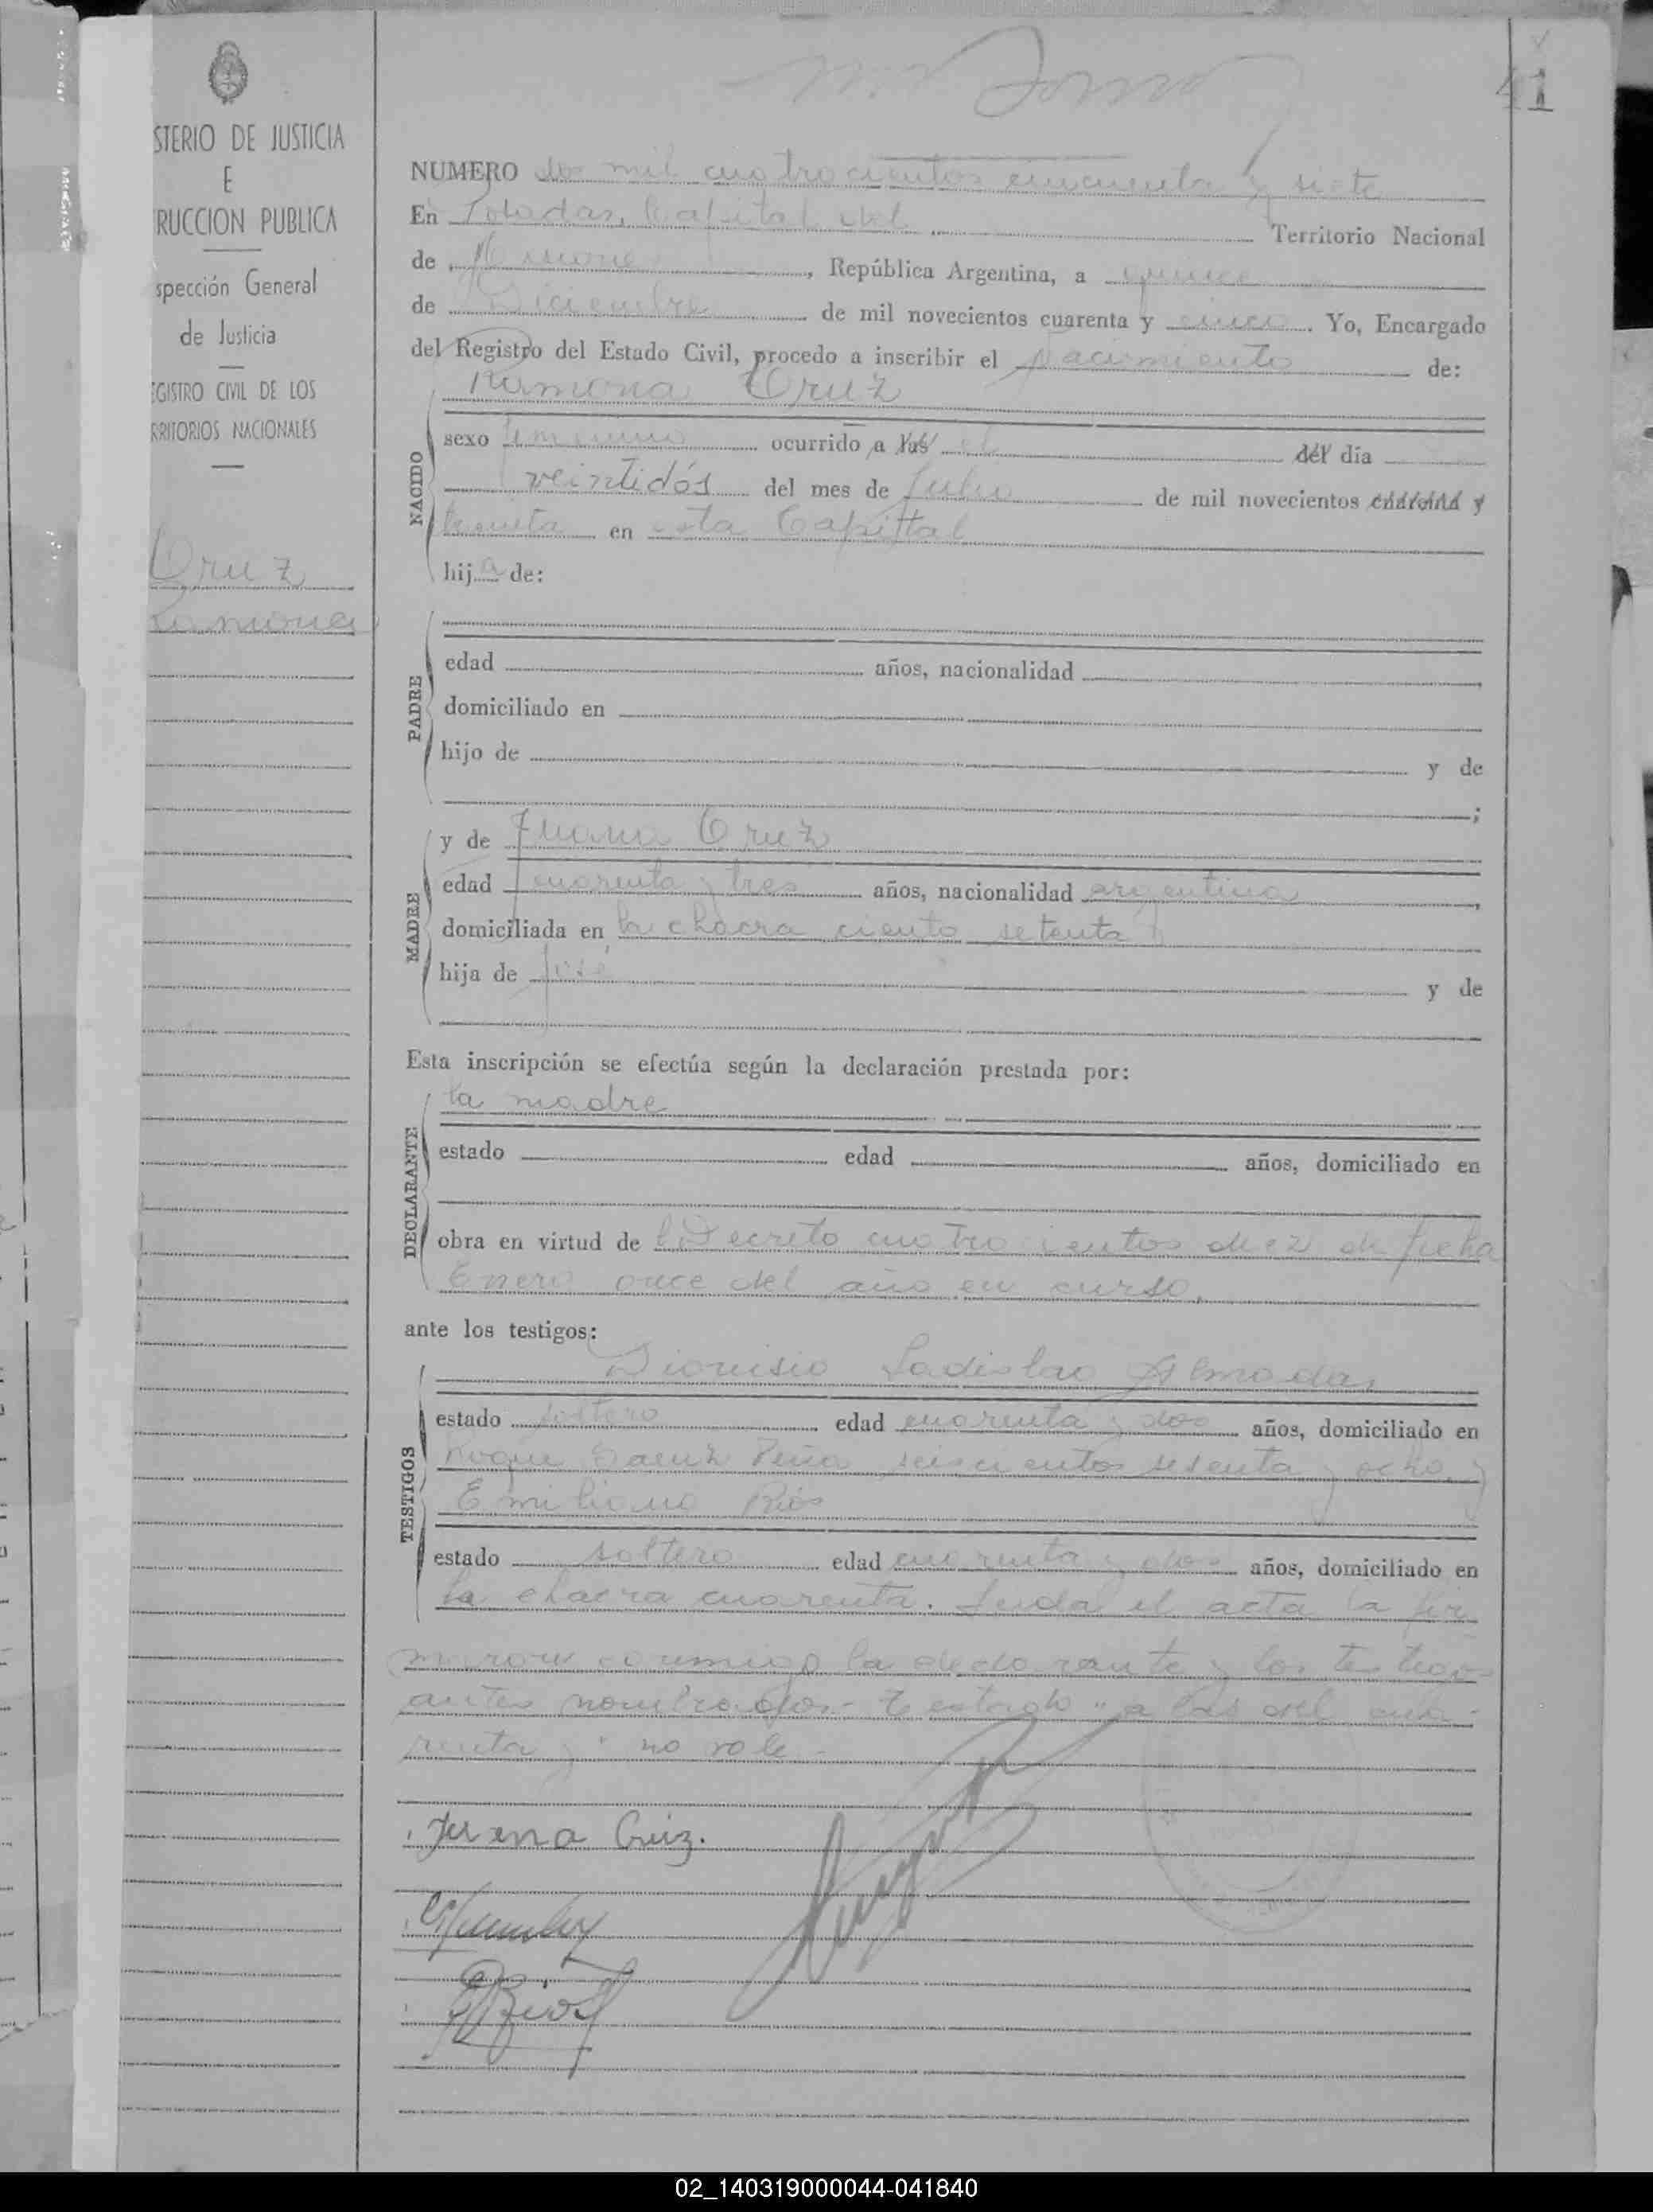 41
STERIO DE JUSTICIA
E
RUCCION PUBLICA
spección General
de Justicia
EGISTRO CIVIL DE LOS
RRITORIOS NACIONALES
Cruz
Ramona
NUMERO dos mil cuatrocientos cincuenta y siete
En Posadas, Capital del Territorio Nacional
de Misiones, República Argentina, a quince
de Diciembre de mil novecientos cuarenta y cinco. Yo, Encargado
del Registro del Estado Civil, procedo a inscribir el nacimiento de:
NACIDO
Ramona Cruz
sexo femenino ocurrido a las el del día
veintidós del mes de Julio de mil novecientos cuarenta y
treinta en esta Capittal
hija de:
PADRE
edad años, nacionalidad
domiciliado en
hijo de y de
;
MADRE
y de Juana Cruz
edad cuarenta y tres años, nacionalidad argentina,
domiciliada en la chacra ciento setenta
hija de José y de
Esta inscripción se efectúa según la declaración prestada por:
DECLARANTE
la madre
estado edad años, domiciliado en
obra en virtud de l Decreto cuatrocientos diez de fecha
Enero once del año en curso.
ante los testigos:
TESTIGOS
Dionisio Ladislao Almada,
estado soltero edad cuarenta y dos años, domiciliado en
Roque Saenz Peña seiscientos sesenta y ocho y
Emiliano Ríos
estado soltero edad cuarenta y dos años, domiciliado en
la chacra cuarenta. Leida el acta la fir
maron conmigo la declarante y los testigos
antes nombrados.- Testado "a las del cua-
renta y" no vale.-
Juana Cruz.
ERios
02_140319000044-041840